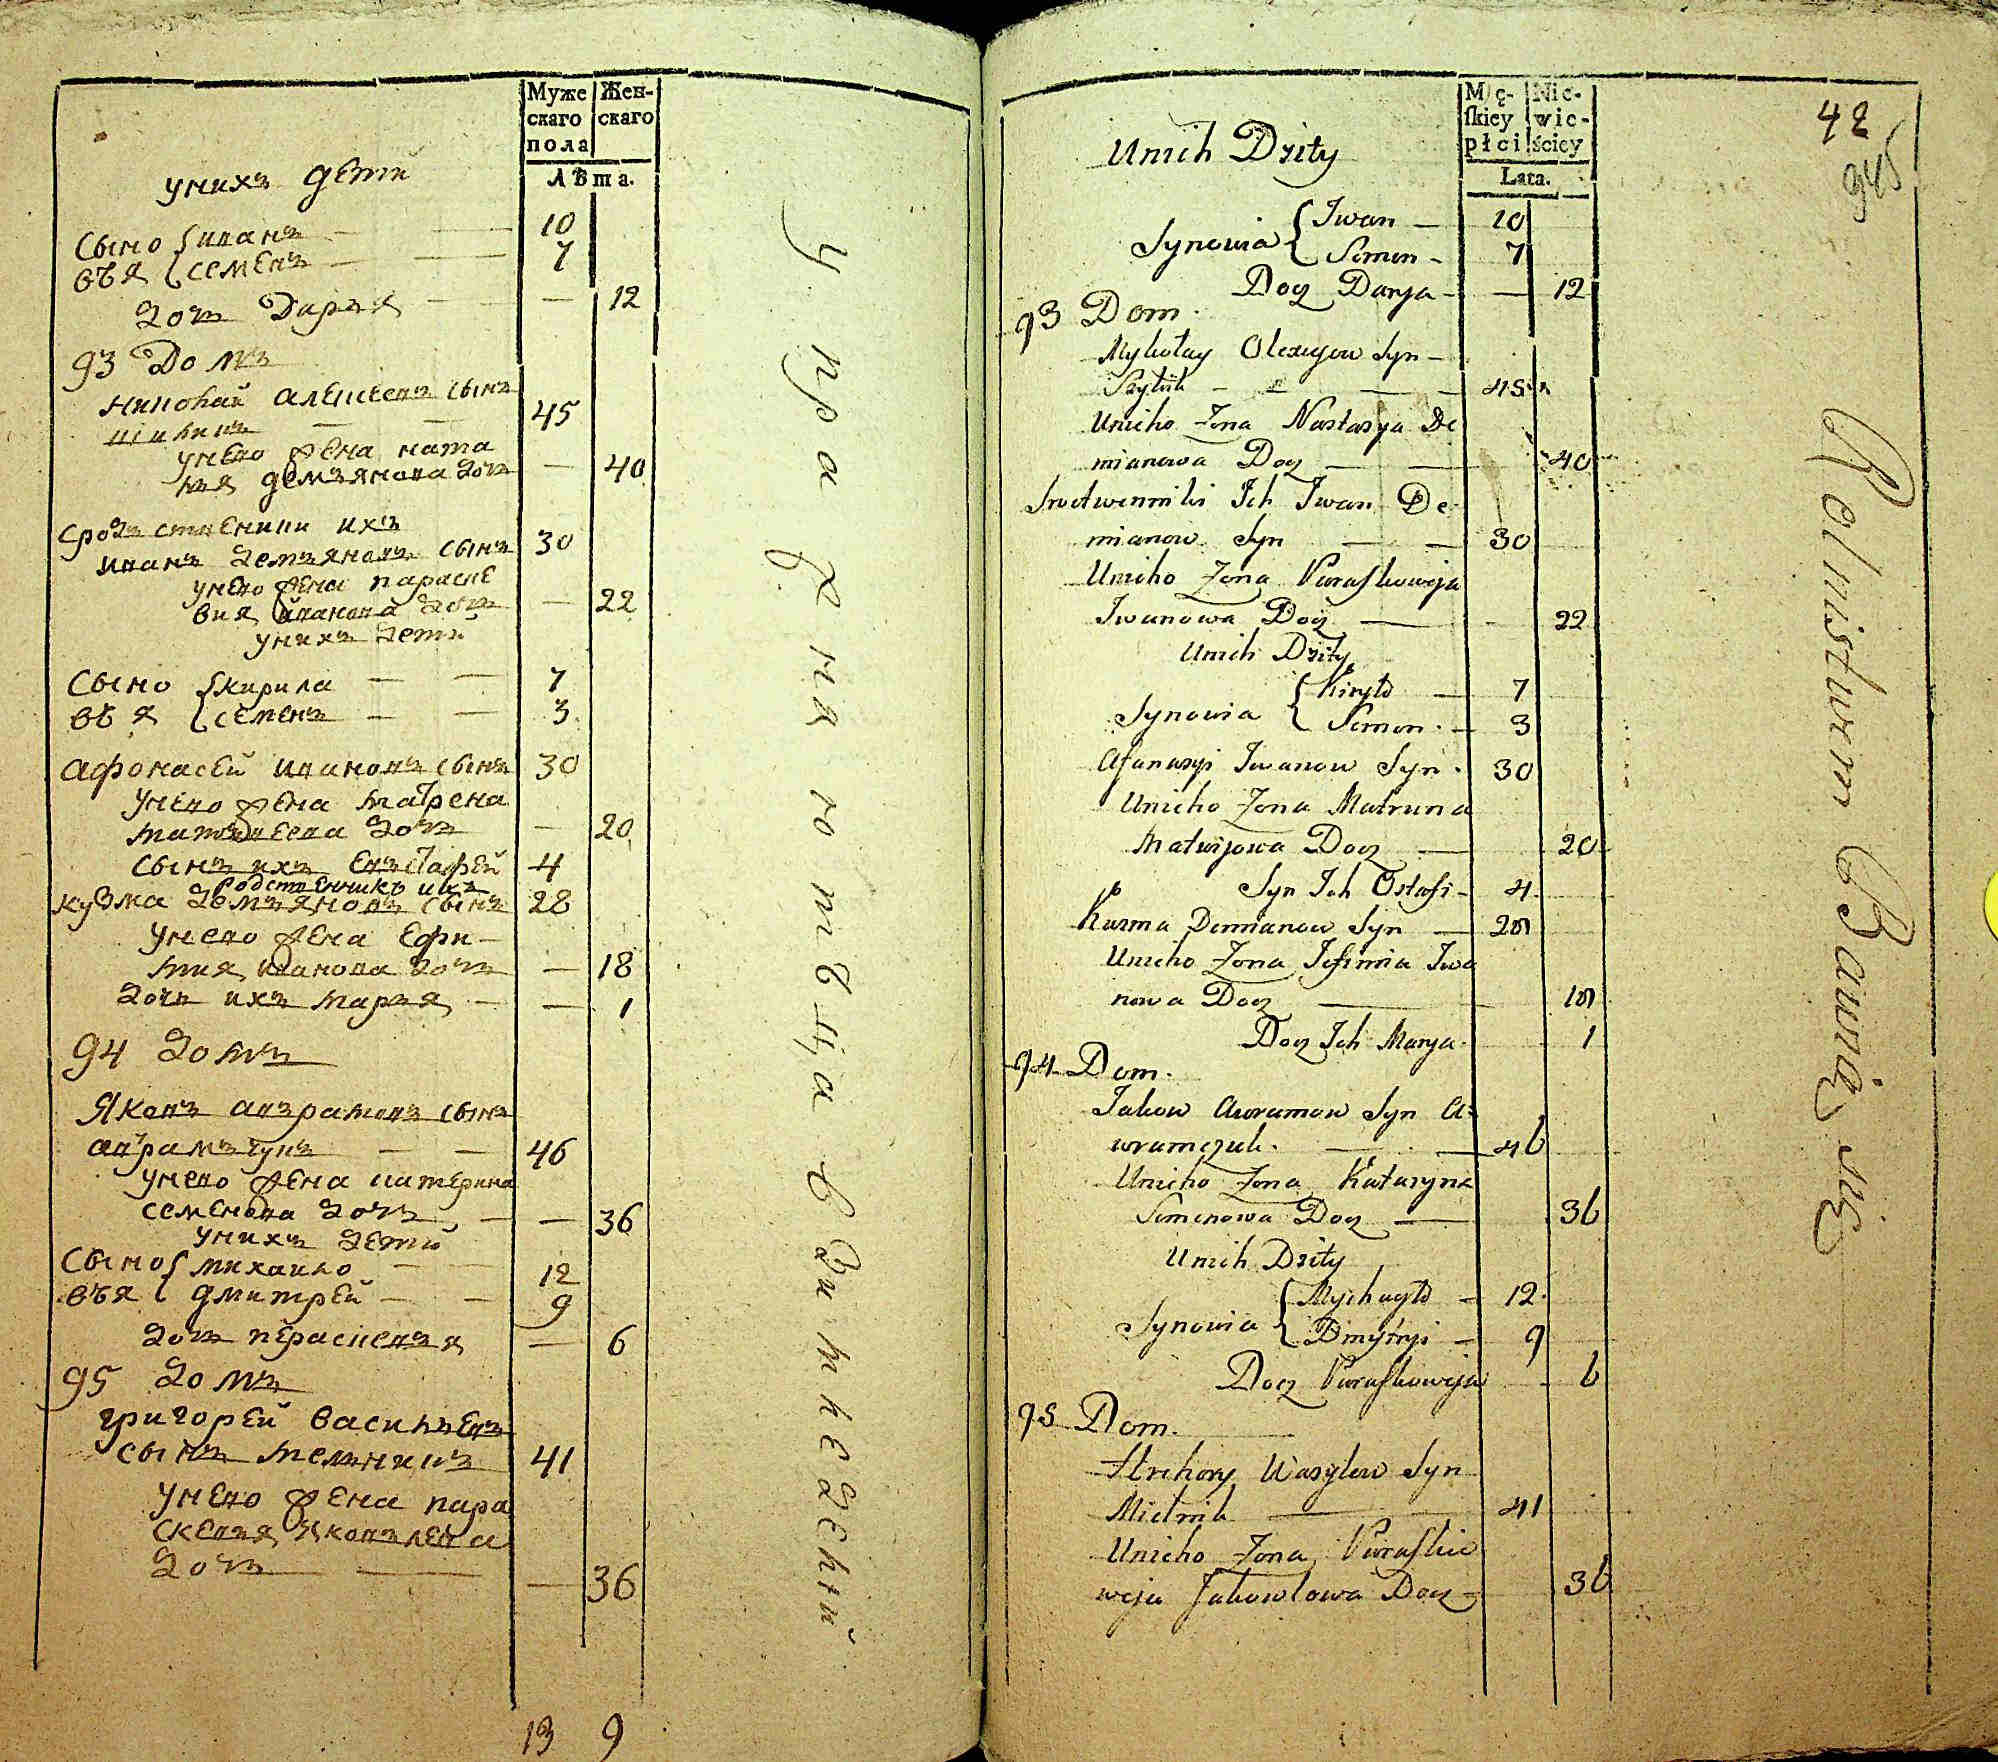 Муже
скаго
пола
Жен-
скаго
Лѣта.
унихъ дети
сыно { иванъ — — 10
вья { семенъ — — 7
дочь Дарья — — 12
93 Домъ
николай алексеевъ сынъ
— — 45
унево жена наста
дземьянова дочь — 40
сродственики ихъ
иванъ демьяновъ сынъ 30
унево жена параске
вия иванова дочь — 22
унихъ дети
сыно { кирила — — 7
вья { семенъ — — 3
афонасей ивановъ сынъ 30
унево жена матрена
матвеева дочь — 20
сынъ ихъ евстафей 4
родственникъ ихъ
кузма демьяновъ сынъ 28
унево жена ефи-
мия иванова дочь — 18
дочь ихъ марья — — 1
94 домъ
Яковъ авраамовъ сынъ
аврамчукъ — — 46
унево жена катерина
семенова дочь — — 36
унихъ дети
сыно { михаило — — 12
вья { дмитрей — — 9
дочь пераскевья — 6
95 домъ
григорей васильевъ
сынъ мельникъ 41
унево жена пара
скевья яковлева
дочь — — 36
13 9
Управляющiй
Męz-
skiey
płci
Nie-
wie-
ściey
Lata.
42
945
Unich Dzity
Synowia { Iwan — 10
{ Semen — 7
Docz Darya — — 12
93 Dom.
Mykołay Olexiyow Syn —
Szybik — — — 45
Unieho Zona Nastasya De
mianowa Docz — — 40
Srodtwenniki Ich Iwan De-
mianow Syn — — 30
Unieho Zona Paraskowija
Iwanowa Docz — — 22
Unich Dzity
Synowia { Kiryło — 7
{ Semen — 3
Afanasyi Iwanow Syn . 30
Unieho Zona Matruna
Matwijowa Docz — 20
Syn Ich Ostafi — 4
Kuzma Demianow Syn — 28
Unieho Zona Jefimia Iwa
nowa Docz — 18
Docz Ich Marya . 1
94 Dom.
Jakow Awramow Syn A-
wramczuk . — — 46
Unieho Zona Kataryna
Semenowa Docz — 36
Unich Dzity
Synowia { Mychayło — 12
{ Dmytryi — 9
Docz Paraskowija — 6
95 Dom.
Hrehory Wasylew Syn
Mielnik — — 41
Unieho Zona Paraskie
weja Jakowlowa Docz — 36